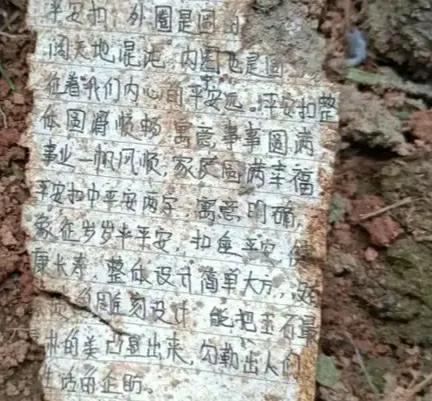 平安扣，外圈是圆
阔天地混沌，内圈也是圆
征着我们内心的平安远。平安扣整
体圆滑顺畅，寓意事事圆满
事业一帆风顺，家庭圆满幸福
平安扣中平安两字，寓意明确，
象征岁岁平平安，扣住平安，健
康长寿，整体设计简单大方，没
的雕刻设计，能把玉石最
朴的美凸显出来，勾勒出人们
生活的企盼。